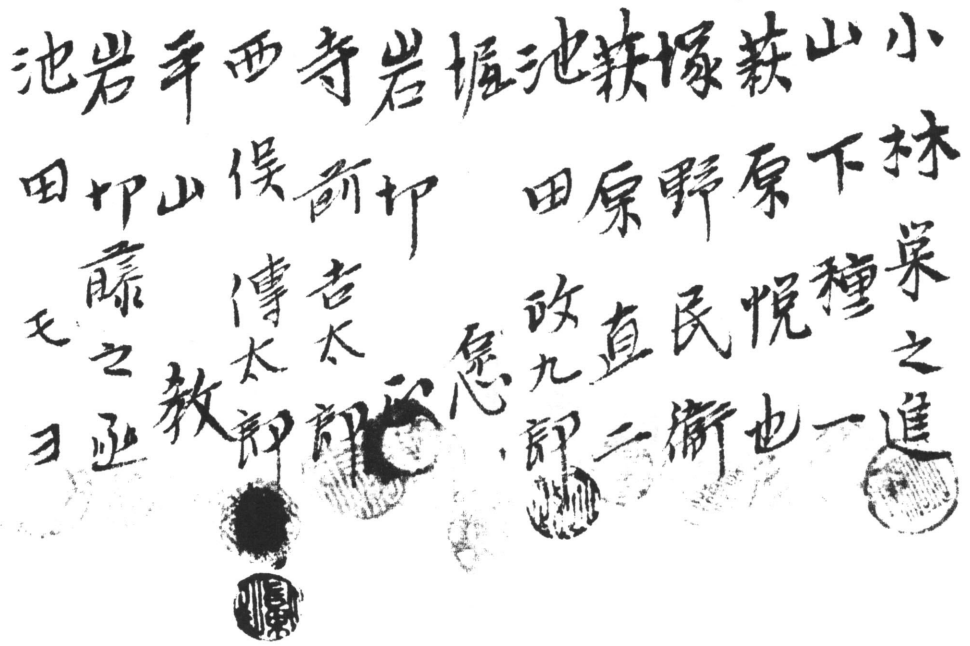 小林巣之進
山下種一
萩原悦也
塚野民衛
萩原直二
池田政九郎
堀愿
岩切
寺前吉太郎
西俣傳太郎
平山教
岩切藤之丞
池田